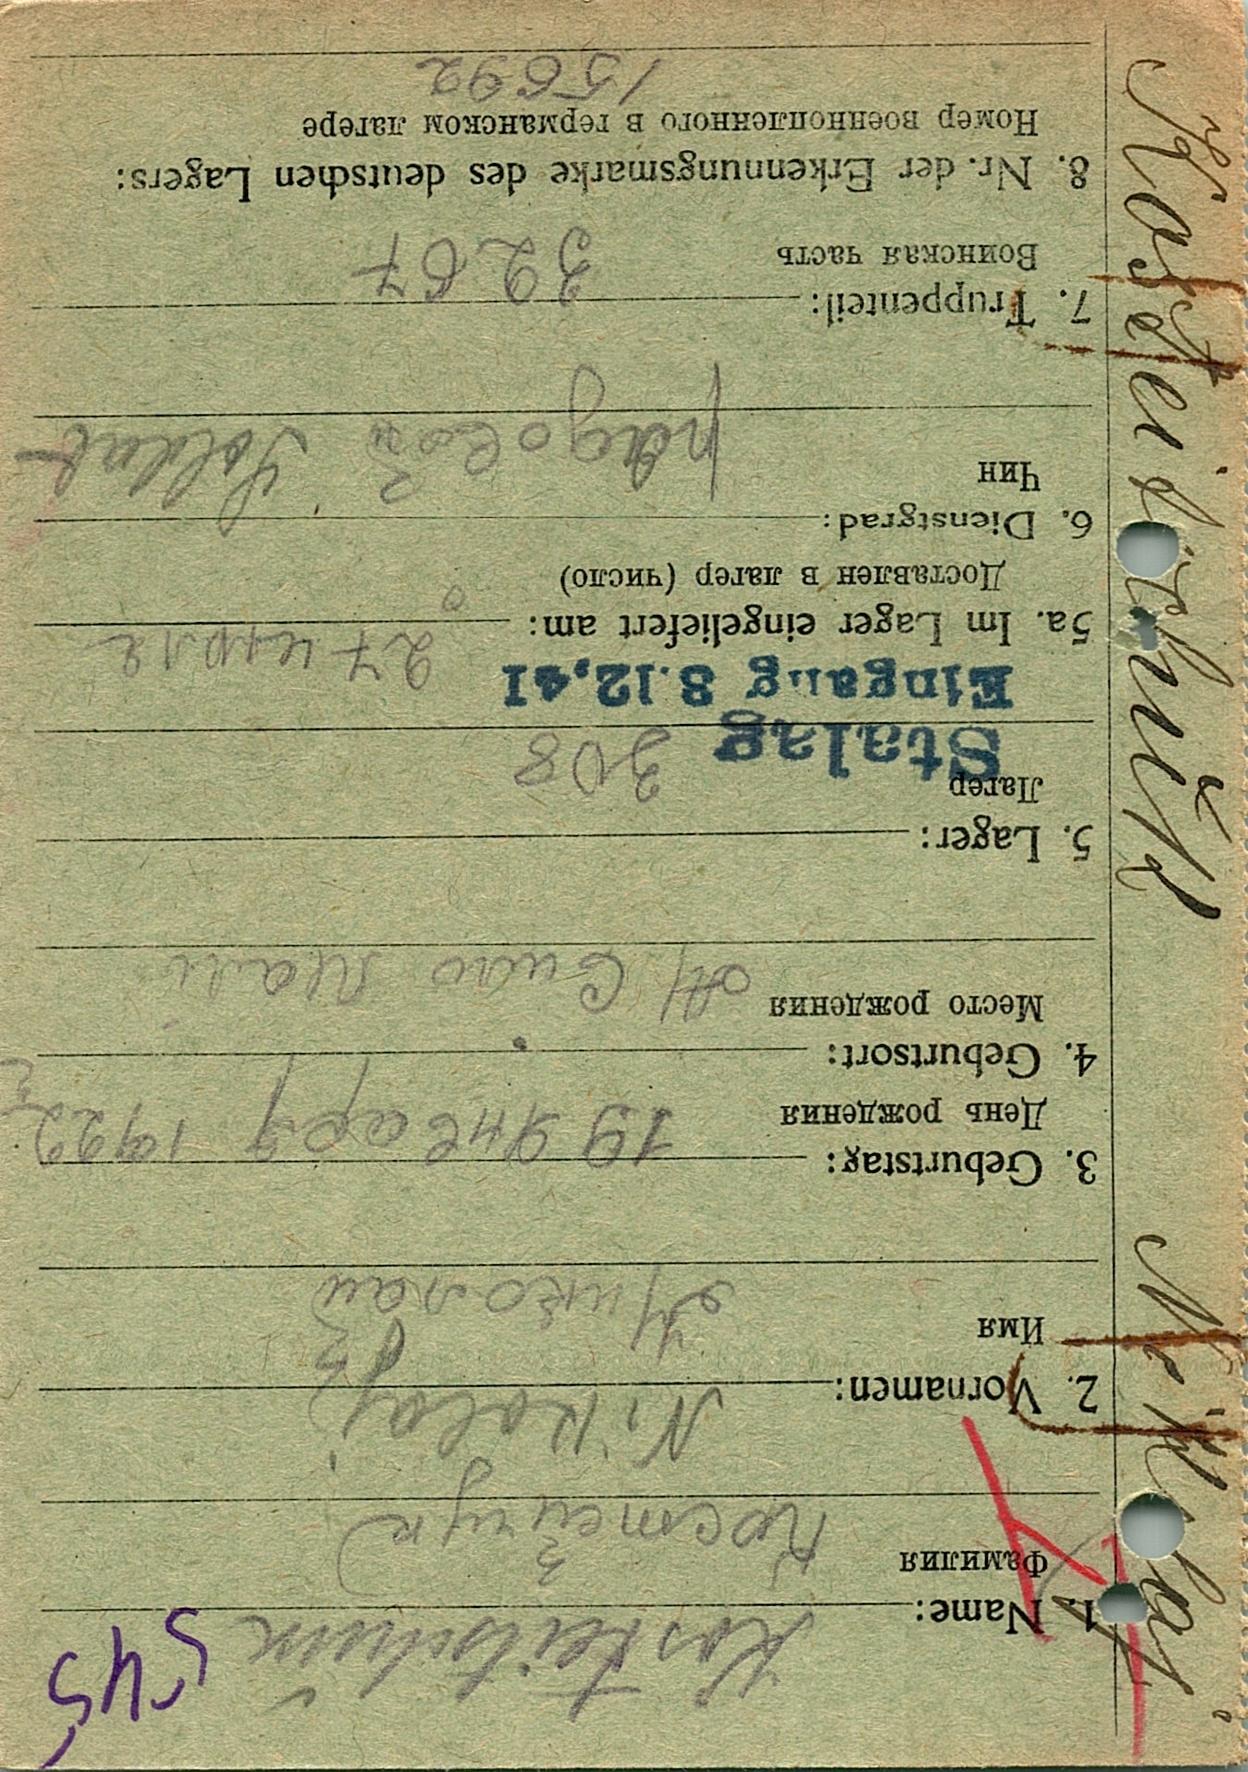 545
Kosteitschuk
1. Name:
Фамилия
Костейчук
Nikolaj
2. Vornamen:
Имя
Николай
3. Geburtstag: 19 января 1922
День рождения
4. Geburtsort:
Место рождения
5. Lager:
Лагер
308
Stalag
Eingang 8.12.41
5a. Im Lager eingeliefert am:
Доставлен в лагер (число)
27
6. Dienstgrad:
Чин
рядовой Soldat
7. Truppenteil:
Воинская часть
3267
8. Nr. der Erkennungsmarke des deutschen Lagers:
Номер военнопленного в германском лагере
15692
Kosteitschuk Nikolaj.